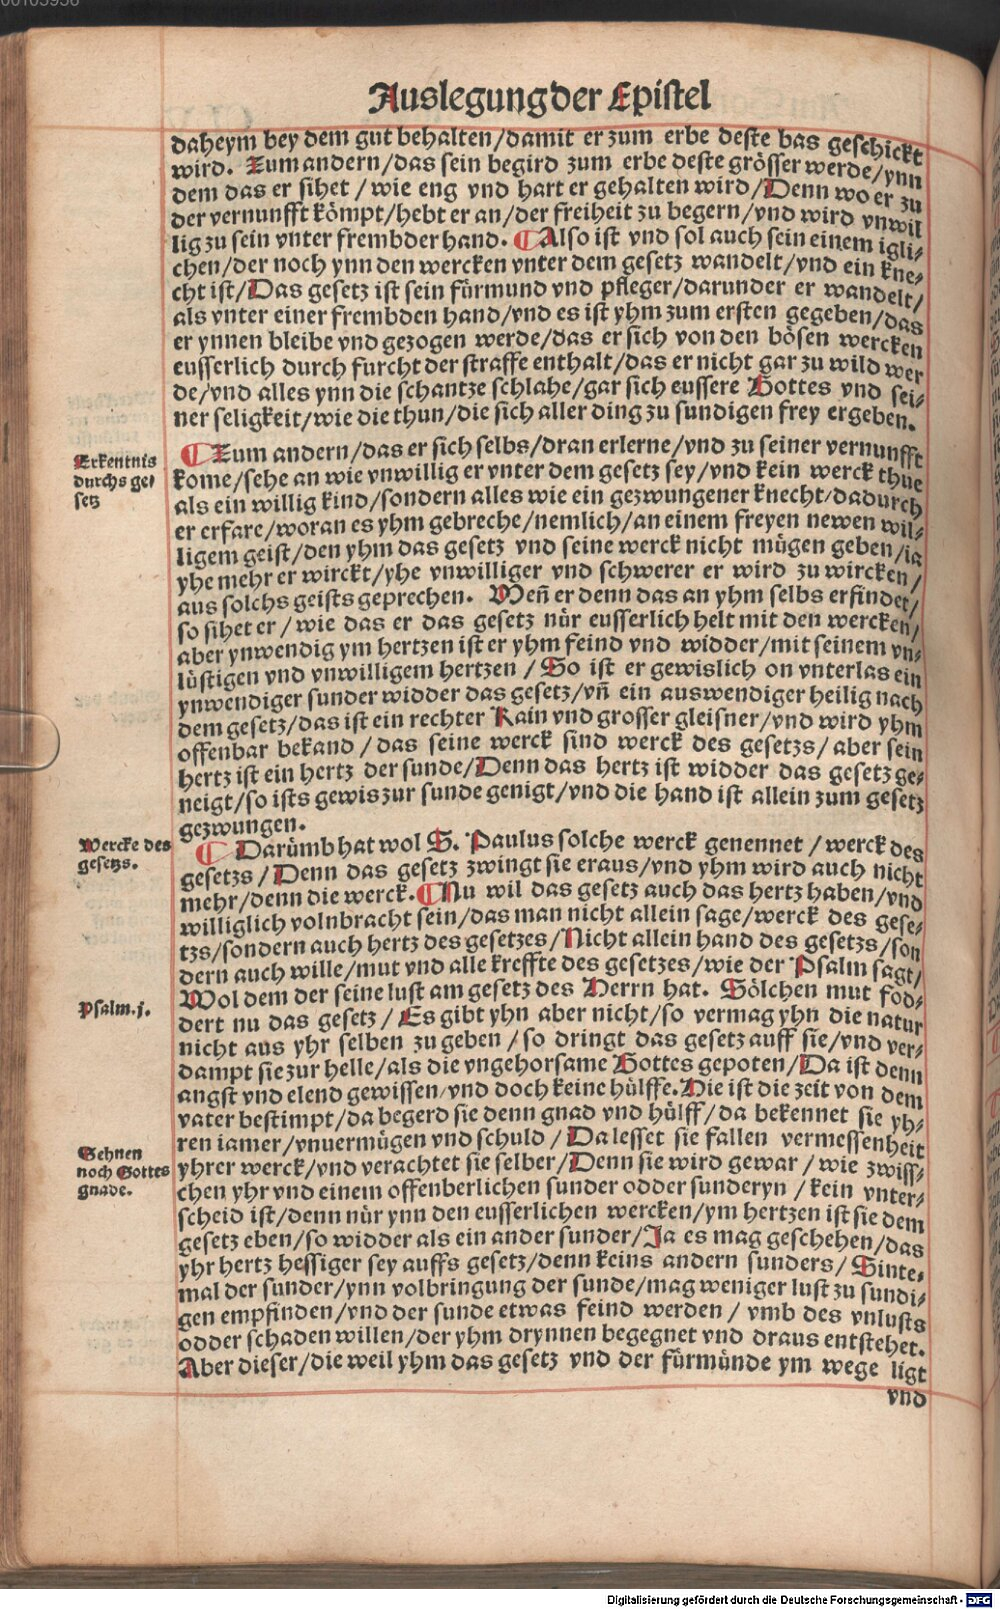 Auslegung der Epistel
daheym bey dem gut behalten/damit er zum erbe deste bas geschickt
wird. Zum andern/das sein begird zum erbe deste grösser werde/ynn
dem das er sihet/wie eng vnd hart er gehalten wird/Denn wo er zu
der vernunfft kömpt/hebt er an/der freiheit zu begern/vnd wird vnwil
lig zu sein vnter frembder hand. ¶Also ist vnd sol auch sein einem igli-
chen/der noch ynn den wercken vnter dem gesetz wandelt/vnd ein kne-
cht ist/Das gesetz ist sein fürmund vnd pfleger/darunder er wandelt/
als vnter einer frembden hand/vnd es ist yhm zum ersten gegeben/das
er ynnen bleibe vnd gezogen werde/das er sich von den bösen wercken
eusserlich durch furcht der straffe enthalt/das er nicht gar zu wild wer
de/vnd alles ynn die schantze schlahe/gar sich eussere Gottes vnd sei-
ner seligkeit/wie die thun/die sich aller ding zu sundigen frey ergeben.
Erkentnis
durchs ge-
setz
¶Zum andern/das er sich selbs/dran erlerne/vnd zu seiner vernunfft
kome/sehe an wie vnwillig er vnter dem gesetz sey/vnd kein werck thue
als ein willig kind/sondern alles wie ein gezwungener knecht/dadurch
er erfare/woran es yhm gebreche/nemlich/an einem freyen newen wil-
ligem geist/den yhm das gesetz vnd seine werck nicht mügen geben/ia
yhe mehr er wirckt/yhe vnwilliger vnd schwerer er wird zu wircken/
aus solchs geists geprechen. Weñ er denn das an yhm selbs erfindet/
so sihet er/wie das er das gesetz nür eusserlich helt mit den wercken/
aber ynwendig ym hertzen ist er yhm feind vnd widder/mit seinem vn-
lüstigen vnd vnwilligem hertzen/So ist er gewislich on vnterlas ein
ynwendiger sunder widder das gesetz/vñ ein auswendiger heilig nach
dem gesetz/das ist ein rechter Kain vnd grosser gleisner/vnd wird yhm
offenbar bekand/das seine werck sind werck des gesetzs/aber sein
hertz ist ein hertz der sunde/Denn das hertz ist widder das gesetz ge-
neigt/so ists gewis zur sunde genigt/vnd die hand ist allein zum gesetz
gezwungen.
Wercke des
gesetzs.
¶ Darümb hat wol S. Paulus solche werck genennet/werck des
gesetzs/Denn das gesetz zwingt sie eraus/vnd yhm wird auch nicht
mehr/denn die werck. ¶Nu wil das gesetz auch das hertz haben/vnd
williglich volnbracht sein/das man nicht allein sage/werck des gese-
tzs/sondern auch hertz des gesetzes/Nicht allein hand des gesetzs/son
dern auch wille/mut vnd alle kreffte des gesetzes/wie der Psalm sagt/
Psalm.j.
Wol dem der seine lust am gesetz des Herrn hat. Sölchen mut fod-
dert nu das gesetz/Es gibt yhn aber nicht/so vermag yhn die natur
nicht aus yhr selben zu geben/so dringt das gesetz auff sie/vnd ver-
dampt sie zur helle/als die vngehorsame Gottes gepoten/Da ist denn
angst vnd elend gewissen/vnd doch keine hülffe. Hie ist die zeit von dem
vater bestimpt/da begerd sie denn gnad vnd hülff/da bekennet sie yh-
ren iamer/vnuermügen vnd schuld/Da lesset sie fallen vermessenheit
Sehnen
noch Gottes
gnade.
yhrer werck/vnd verachtet sie selber/Denn sie wird gewar/wie zwiss-
chen yhr vnd einem offenberlichen sunder odder sunderyn/kein vnter-
scheid ist/denn nür ynn den eusserlichen wercken/ym hertzen ist sie dem
gesetz eben/so widder als ein ander sunder/Ja es mag geschehen/das
yhr hertz hessiger sey auffs gesetz/denn keins andern sunders/Sinte-
mal der sunder/ynn volbringung der sunde/mag weniger lust zu sundi-
gen empfinden/vnd der sunde etwas feind werden/vmb des vnlusts
odder schaden willen/der yhm drynnen begegnet vnd draus entstehet.
Aber dieser/die weil yhm das gesetz vnd der fürmünde ym wege ligt
vnd
Digitalisierung gefördert durch die Deutsche Forschungsgemeinschaft - DFG